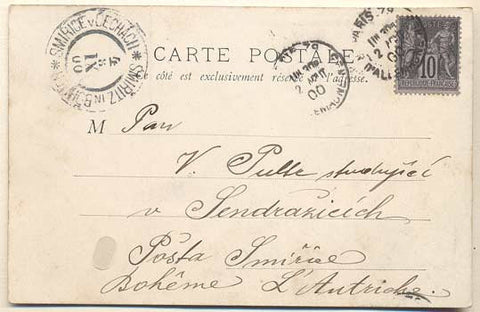 SMIŘICE v ČECHÁCH * SMIŘITZ IN BÖHMEN *
4
IX
00
PARIS 79
00
PARIS 79
RÉPUBLIQUE FRANÇAISE
10
CARTE POSTALE
Ce côté est exclusivement réservé à l'adresse.
M Pan
V. Pulte studující
v Sendražicích
Pošta Smiřice
Bohême L'Autriche.